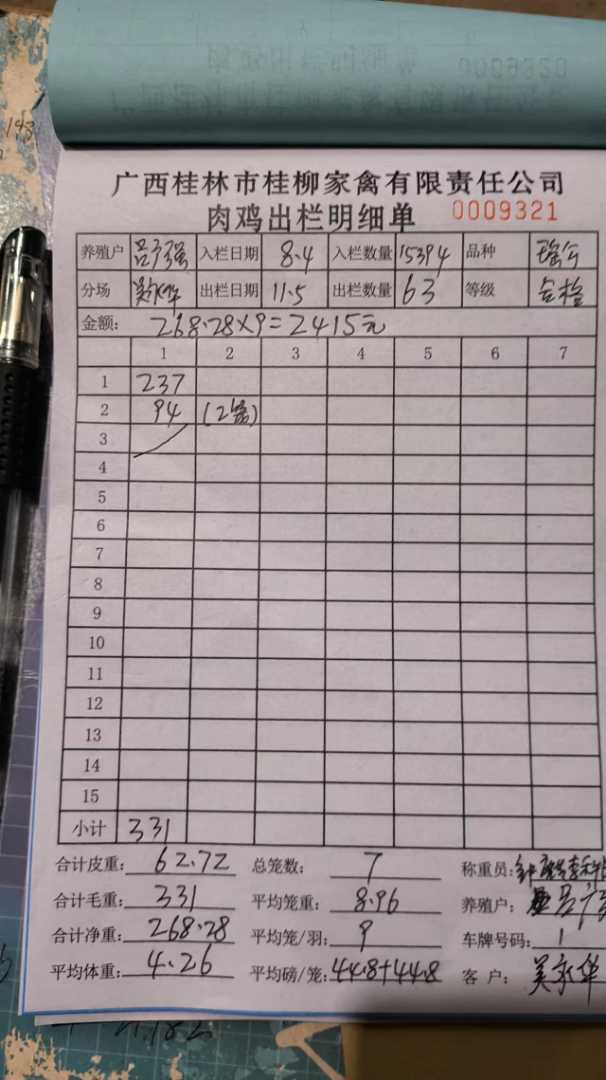 广西桂林市桂柳家禽有限责任公司
肉鸡出栏明细单 0009321
养殖户 吕子强 入栏日期 8.4 入栏数量 15394 品种
分场 吴永华 出栏日期 11.5 出栏数量 63 等级 合格
金额: 268.28×9=2415元
1 2 3 4 5 6 7
1 237
2 94 (2笼)
3
4
5
6
7
8
9
10
11
12
13
14
15
小计 331
合计皮重: 62.72 总笼数: 7 称重员:
合计毛重: 331 平均笼重: 8.96 养殖户:
合计净重: 268.28 平均笼/羽: 9 车牌号码: 1
平均体重: 4.26 平均磅/笼: 44.8+44.8 客户: 吴永华